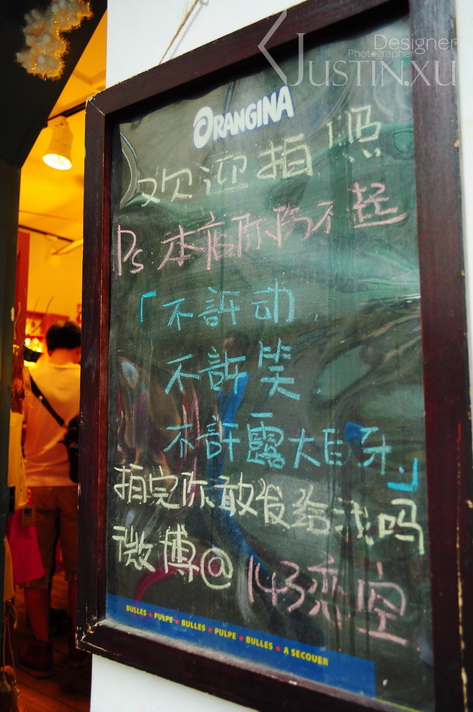 Designer
Photographer
JUSTIN.XU
ORANGINA
欢迎拍照
Ps:本店你伤不起
「不許动,
不許笑,
不許露大白牙」
拍完你敢发给我吗
微博@143恋空
BULLES ★ PULPE ★ BULLES ★ PULPE ★ BULLES ★ A SECOUER